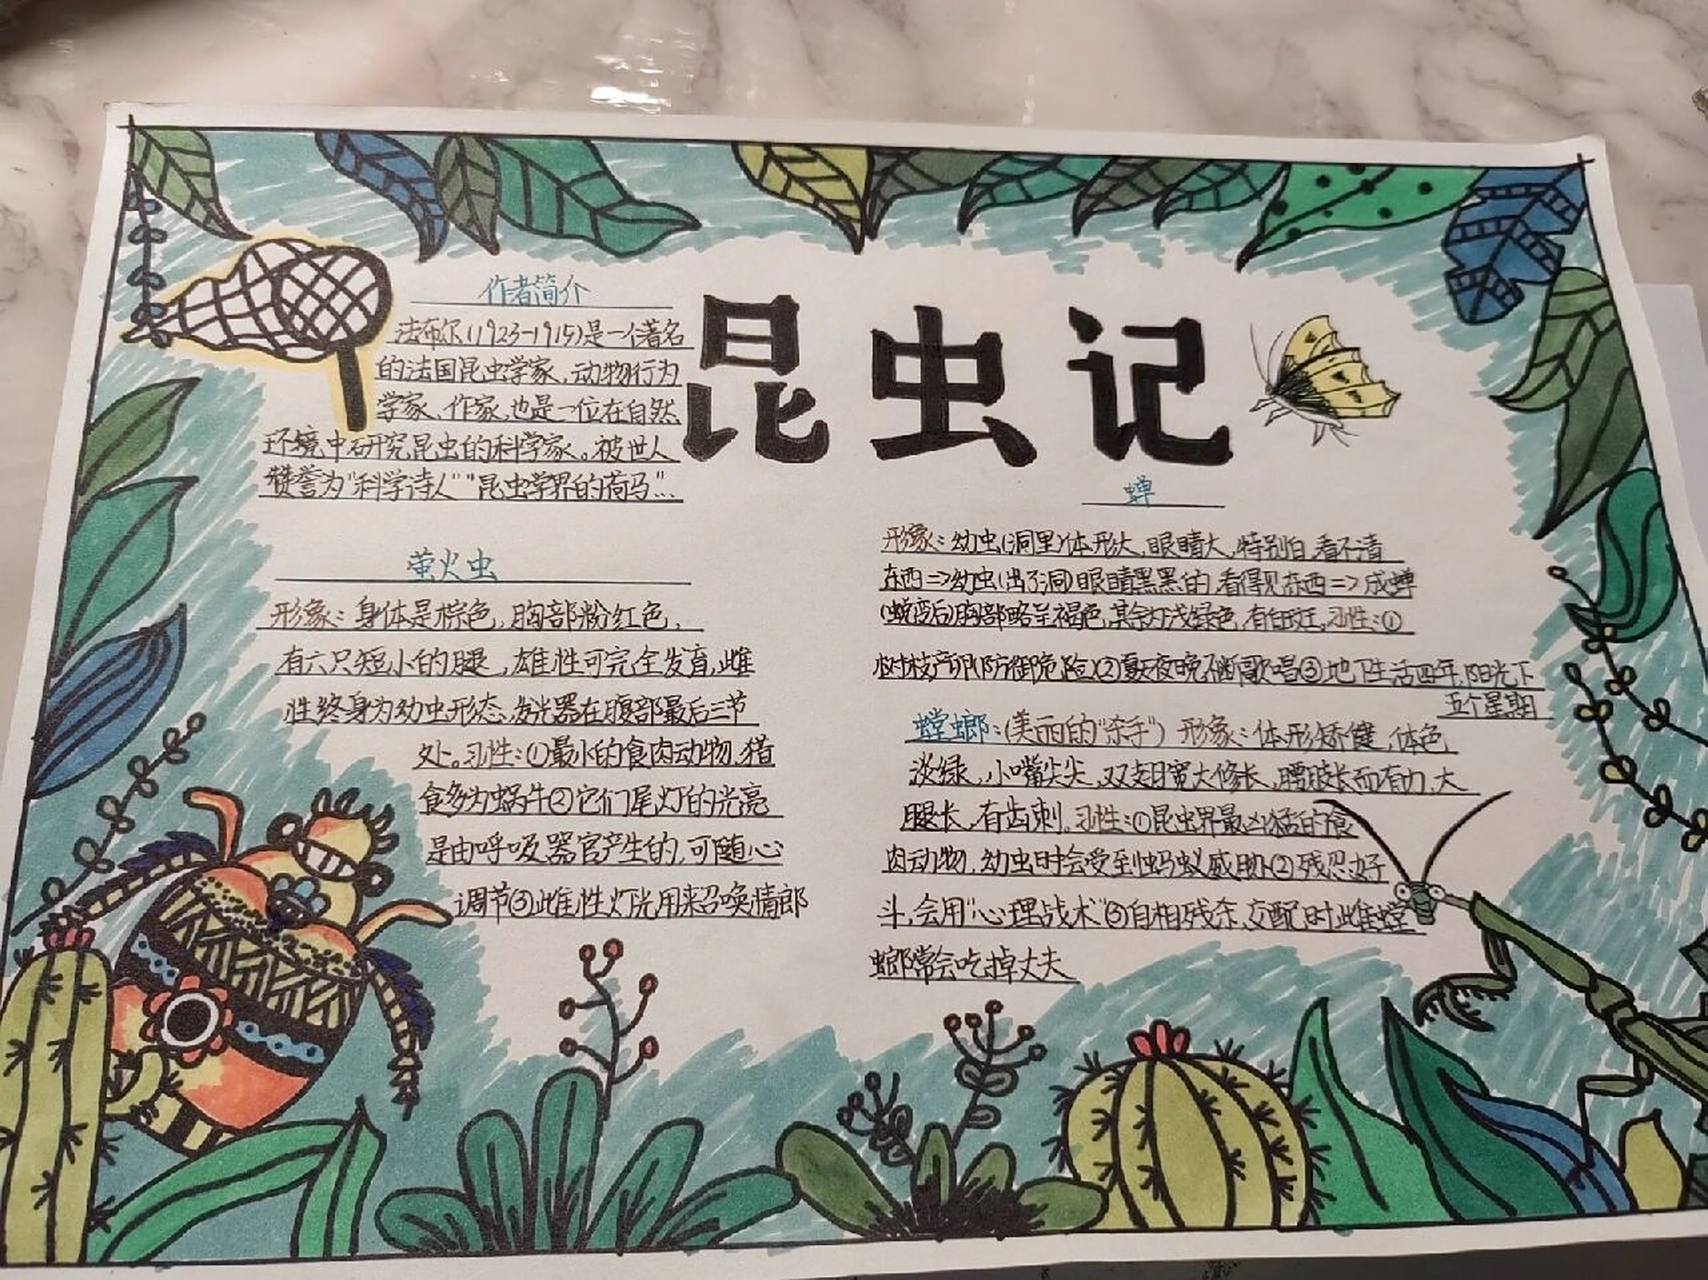 昆虫记
作者简介
法布尔(1923-1915)是一个著名
的法国昆虫学家、动物行为
学家、作家,也是一位在自然
环境中研究昆虫的科学家。被世人
赞誉为"科学诗人""昆虫学界的荷马"...
萤火虫
形象:身体是棕色,胸部粉红色,
有六只短小的腿,雄性可完全发育,雌
性终身为幼虫形态,发光器在腹部最后三节
处。习性:①最小的食肉动物,猎
食多为蜗牛②它们尾灯的光亮
是由呼吸器官产生的,可随心
调节③雌性灯光用来召唤情郎
蝉
形象:幼虫(洞里)体形大,眼睛大,特别白,看不清
东西=>幼虫(出了洞)眼睛黑黑的,看得见东西=>成蝉
(蜕变后)胸部略呈褐色,其余为浅绿色,有白斑,习性:①
树枝产卵(防御危险)②夏天夜晚不断歌唱③地下生活四年,阳光下
五个星期
螳螂:(美丽的"杀手")形象:体形矫健,体色
淡绿,小嘴尖尖,双翅宽大修长,腰肢长而有力,大
腿长,有齿刺。习性:①昆虫界最凶猛的食
肉动物,幼虫时会受到蚂蚁威胁②残忍好
斗,会用"心理战术"③自相残杀,交配时雌螳
螂常会吃掉丈夫